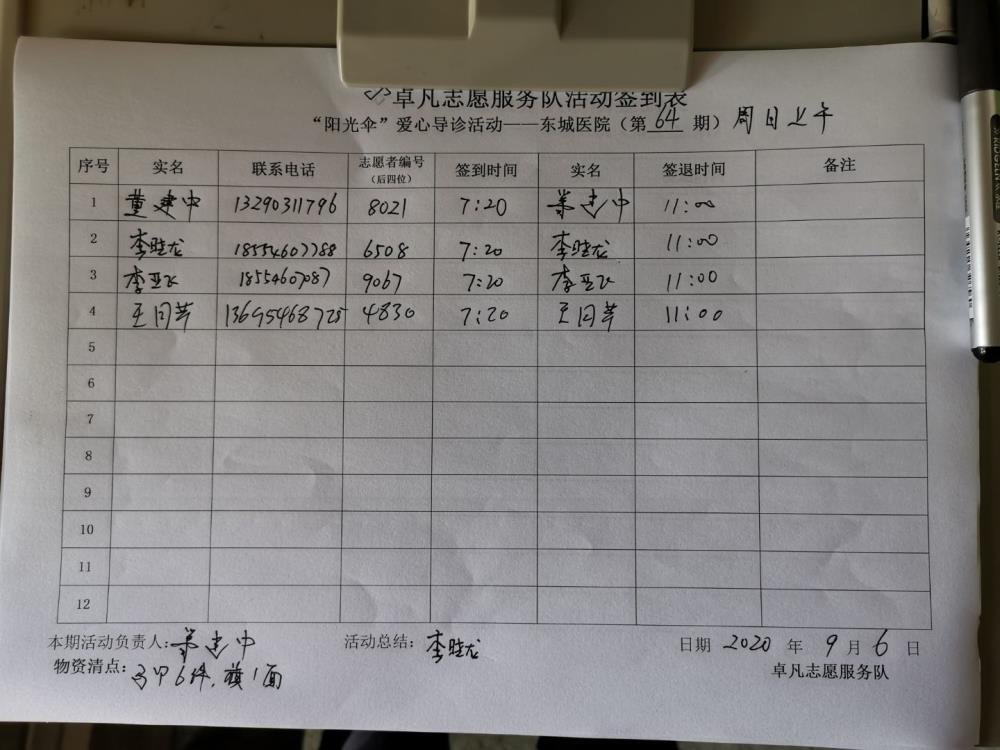 卓凡志愿服务队活动签到表
“阳光伞”爱心导诊活动——东城医院（第 64 期） 周日上午
序号 实名 联系电话 志愿者编号（后四位） 签到时间 实名 签退时间 备注
1 董建中 13290311796 8021 7:20 董建中 11:00
2 李晓龙 18554607788 6508 7:20 李晓龙 11:00
3 李亚飞 18554607087 9067 7:20 李亚飞 11:00
4 王同苹 13695468725 4830 7:20 王同苹 11:00
5
6
7
8
9
10
11
12
本期活动负责人:董建中 活动总结: 李晓龙 日期 2020 年 9 月 6 日
物资清点: 马甲6件，旗1面 卓凡志愿服务队